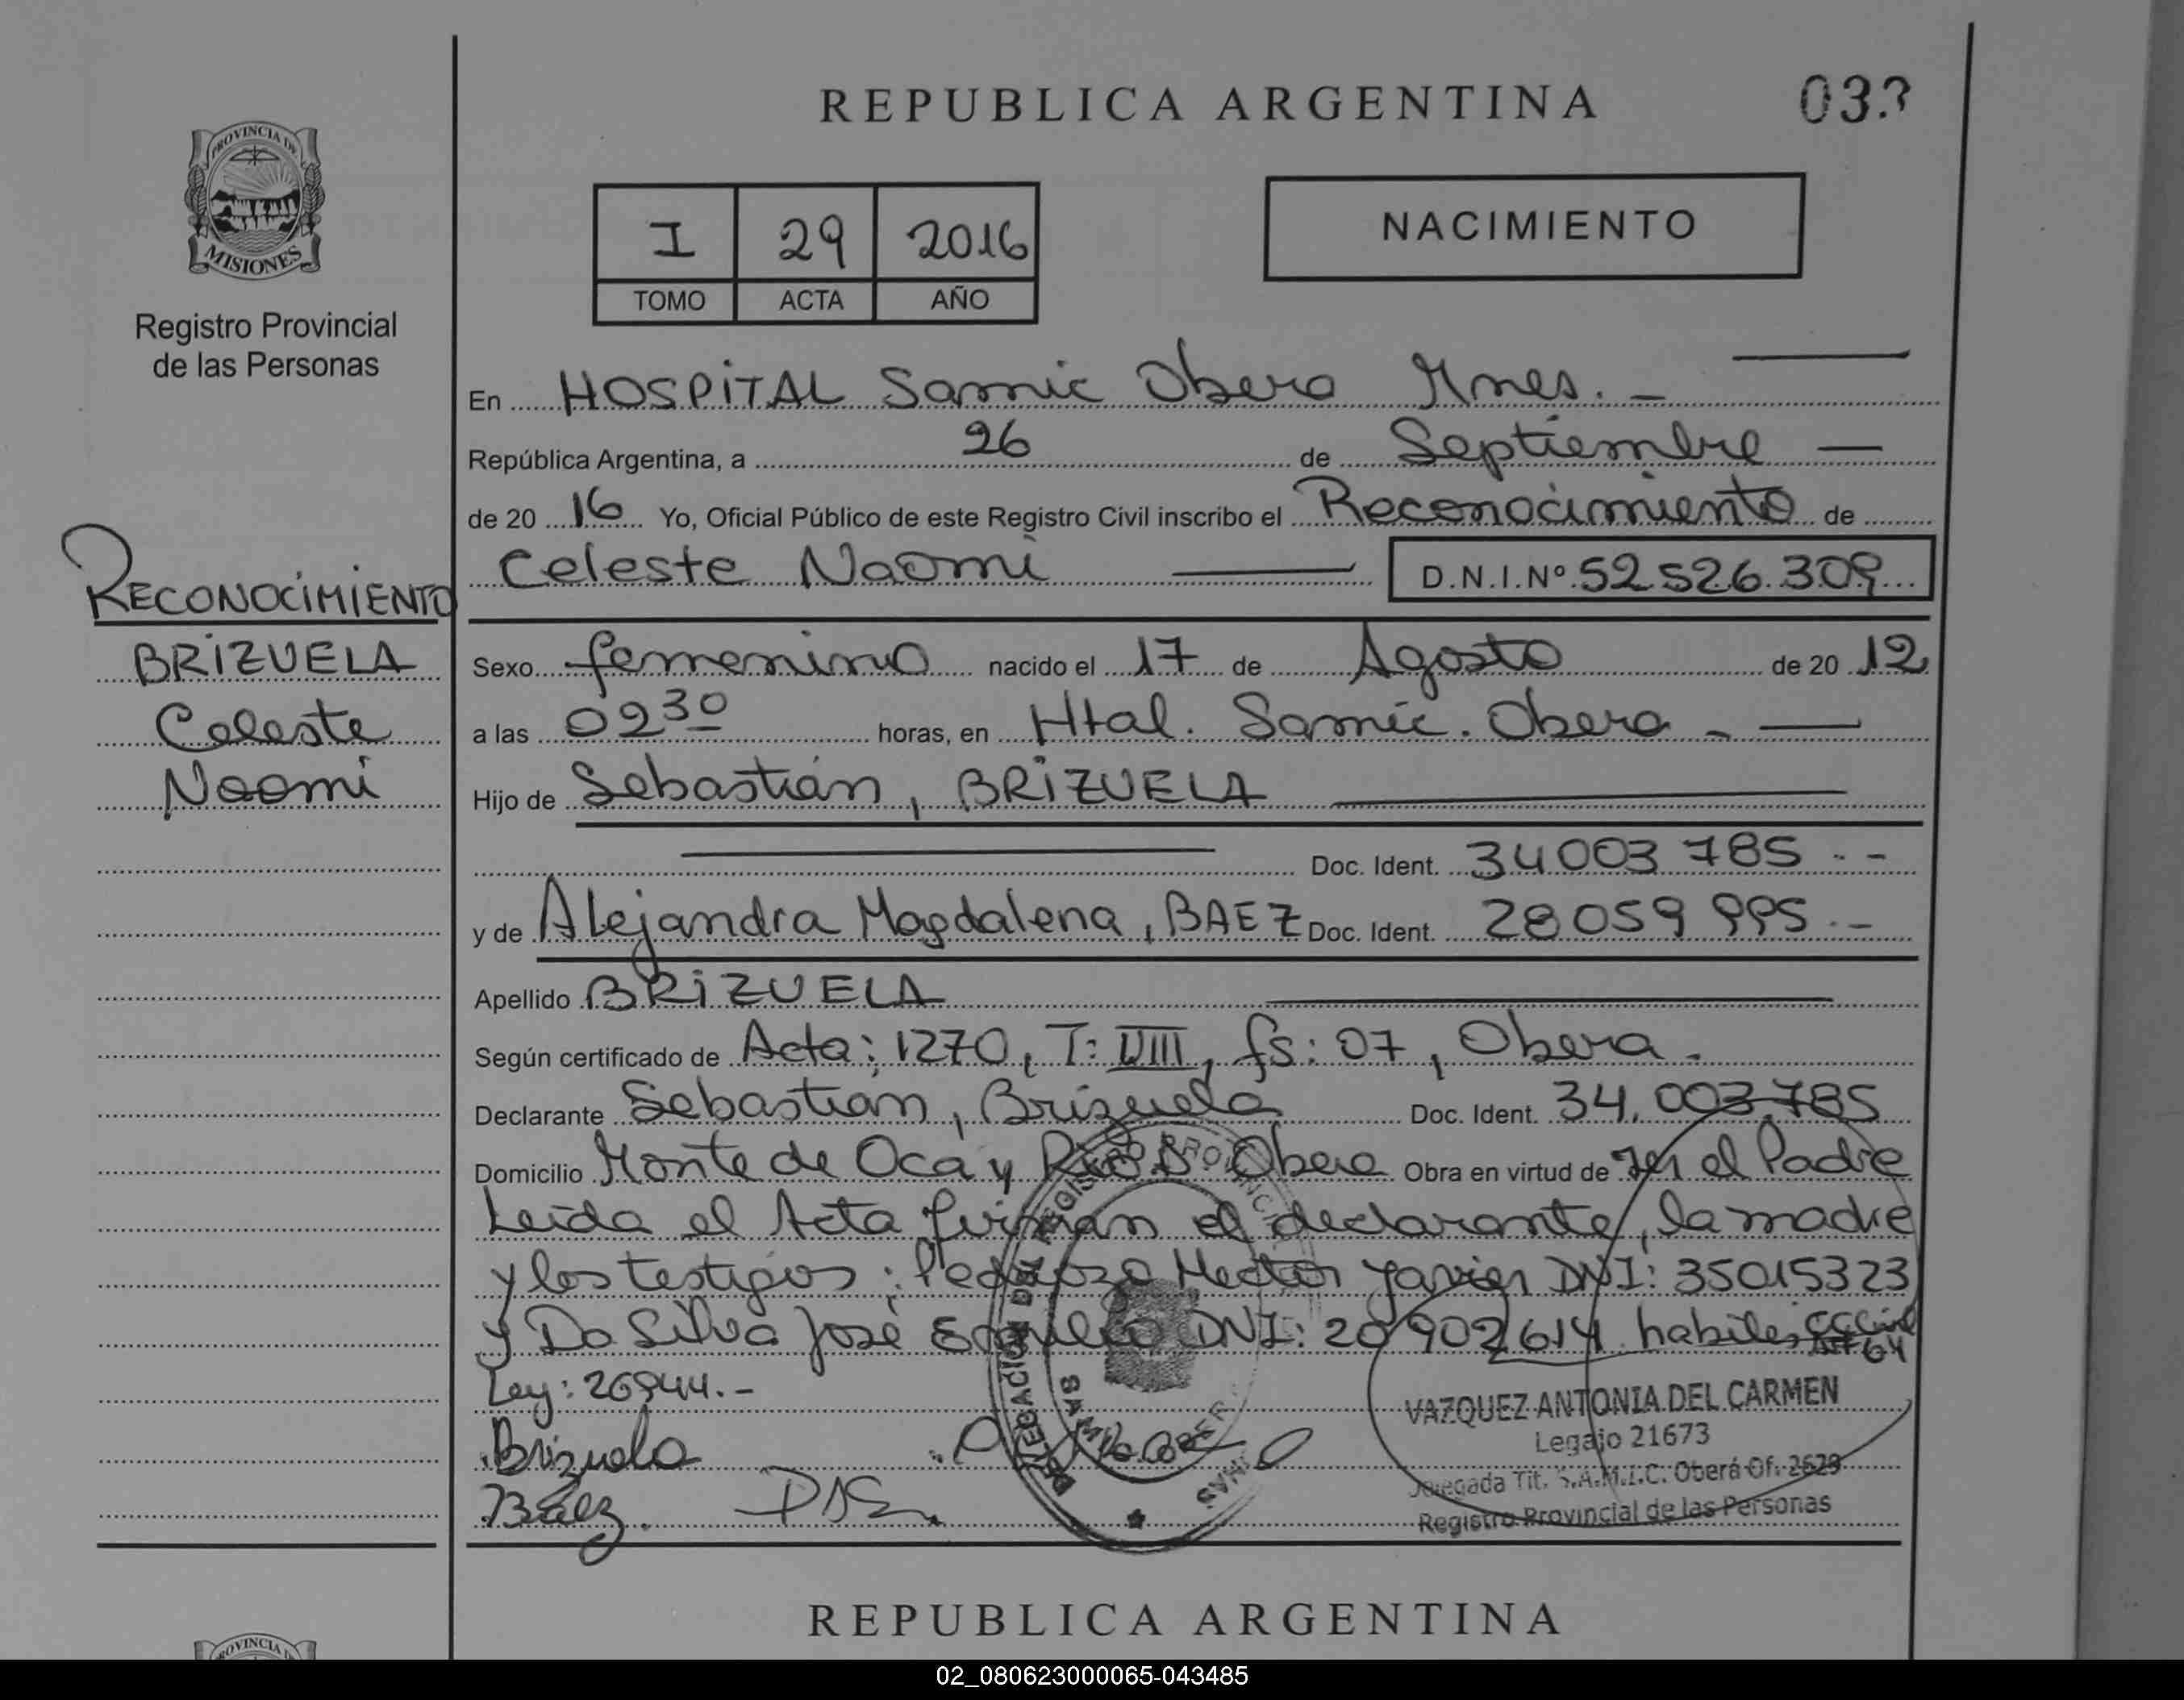 REPUBLICA ARGENTINA
033
PROVINCIA DE
MISIONES
Registro Provincial
de las Personas
I 29 2016
TOMO ACTA AÑO
NACIMIENTO
En HOSPITAL Samic Obera Mnes. -
República Argentina, a 26 de Septiembre
de 20 16 Yo, Oficial Público de este Registro Civil inscribo el Reconocimiento de
Celeste Naomi D.N.I.Nº 52.526.309
RECONOCIMIENTO
BRIZUELA
Celeste
Naomi
Sexo femenino nacido el 17 de Agosto de 20 12
a las 02 30 horas, en Htal. Samic. Obera -
Hijo de Sebastián, BRIZUELA
Doc. Ident. 34003 785 --
y de Alejandra Magdalena, BAEZ Doc. Ident. 28059 995.-
Apellido BRIZUELA
Según certificado de Acta: 1270, T: VIII, fs: 07, Obera.
Declarante Sebastian, Brizuela Doc. Ident. 34.003.785
Domicilio Monte de Oca y Obera Obra en virtud de Ser el Padre
Leida el Acta firman el declarante, la madre
y los testigos: Pedrozo Hector Javier DNI: 35015323
y Da Silva José DNI: 20902614 habiles
Ley: 26944.-
Brizuela
Baez.
VAZQUEZ ANTONIA DEL CARMEN
Legajo 21673
Delegada Tit. S.A.M.I.C. Oberá Of. 2629
Registro Provincial de las Personas
REPUBLICA ARGENTINA
PROVINCIA
02_080623000065-043485